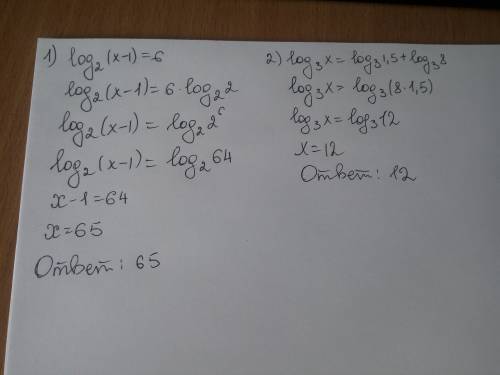 1) log₂(x-1)=6
log₂(x-1)=6·log₂2
log₂(x-1)=log₂2⁶
log₂(x-1)=log₂64
x-1=64
x=65
Ответ: 65
2) log₃x=log₃1,5+log₃8
log₃x=log₃(8·1,5)
log₃x=log₃12
x=12
Ответ: 12